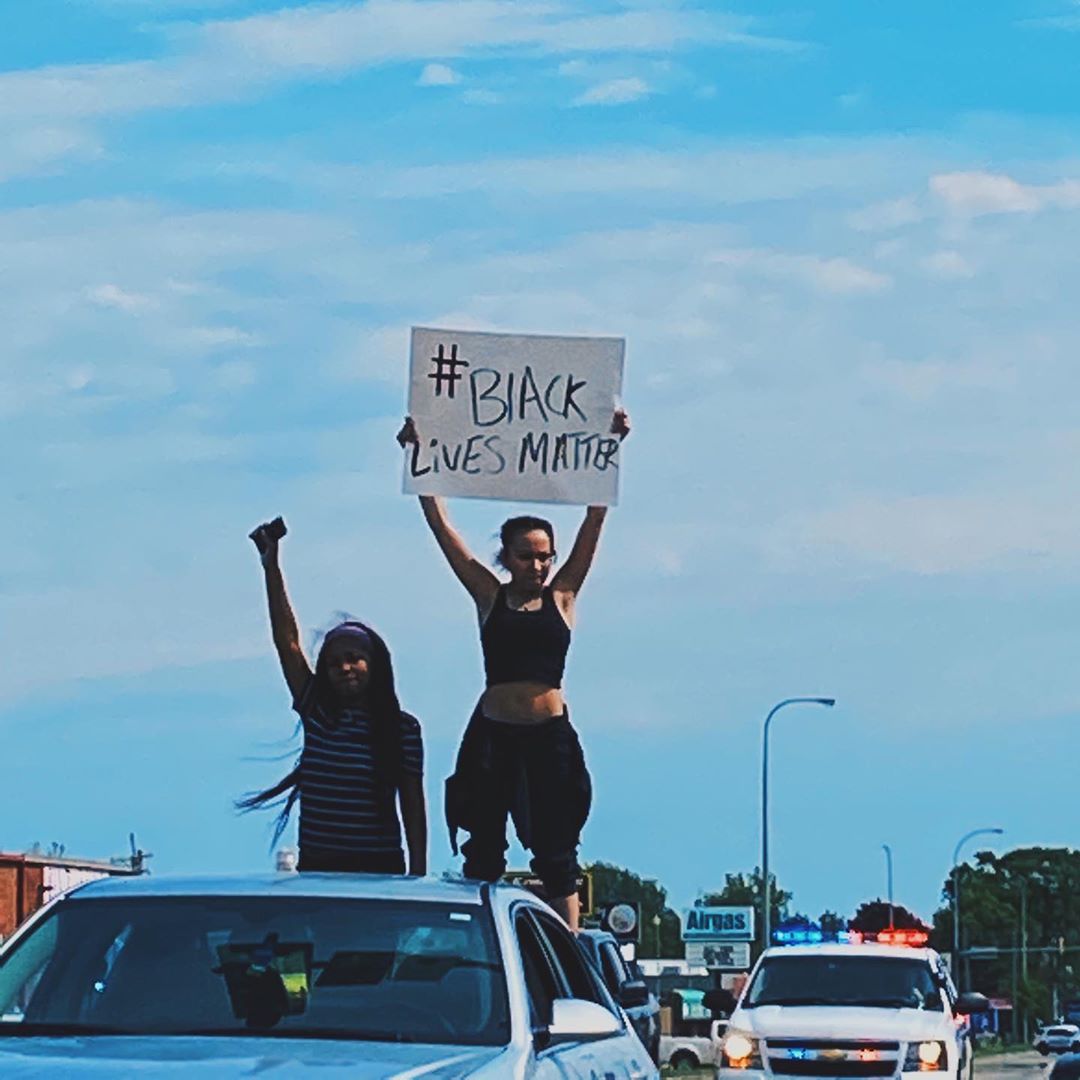 # BLACK
LiVES MATTER
Airgas